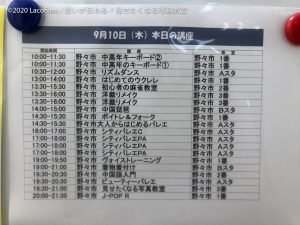 ©2020
9月10日（木）本日の講座
開始時間 講座 教室
10:00-11:30 野々市 中高年キーボード② 野々市 1番
10:00-11:00 野々市 中高年のキーボード① 野々市 1番
10:30-11:30 野々市 リズムダンス 野々市 Aスタ
13:00-14:00 野々市 はじめてのウクレレ 野々市
13:00-15:30 野々市 初心者の麻雀教室 野々市 2番
13:00-16:00 野々市 洋裁リメイク 野々市 3番
13:00-16:00 野々市 洋裁リメイク 野々市 3番
14:00-15:00 野々市 中国琵琶 野々市 Bスタ
14:00-15:30 野々市 ボイトレ＆フォーク 野々市 1番
14:30-15:30 野々市 大人からはじめるバレエ 野々市 Aスタ
16:00-17:00 野々市 シティバレエ 野々市 Aスタ
17:00-18:00 野々市 シティバレエPA 野々市 Aスタ
17:00-18:00 野々市 シティバレエPA 野々市 Aスタ
17:00-18:00 野々市 シティバレエPA 野々市 Aスタ
19:00-19:30 野々市 ヴォイストレーニング 野々市 1番
19:00-21:00 野々市 着物着付け 野々市 Bスタ
19:30-20:30 野々市 中国語入門 野々市 2番
19:30-20:30 野々市 ビューティーバレエ 野々市 Aスタ
19:30-21:00 野々市 見せたくなる写真教室 野々市 3番
20:00-21:30 野々市 J-POP R 野々市 1番